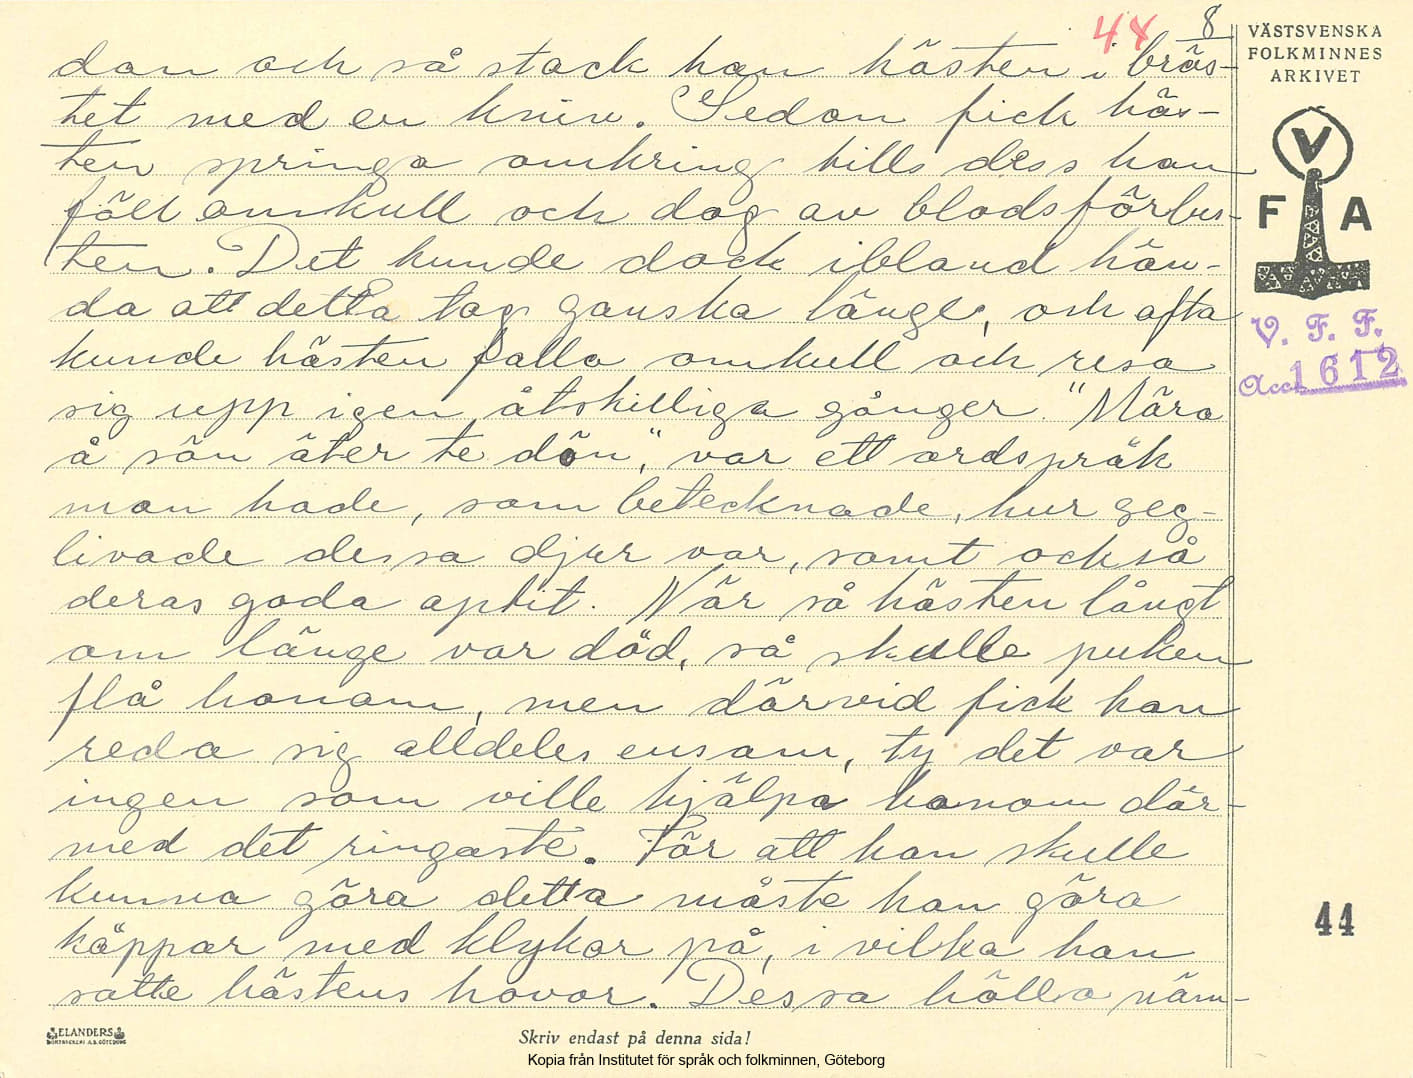 44 8
VÄSTSVENSKA
FOLKMINNES
ARKIVET
dan och så stack han hästen i brös-
tet med en kniv. Sedan fick häs-
ten springa omkring tills dess han
föll omkull och dog av blodsförlus-
ten. Det kunde dock ibland hän-
da att detta tog ganska länge, och ofta
kunde hästen falla omkull och resa
sig upp igen åtskilliga gånger. "Mära
å sön äter te dön", var ett ordspråk
man hade, som betecknade, hur seg-
livade dessa djur var, samt också
deras goda aptit. När så hästen långt
om länge var död, så skulle puken
flå honom, men därvid fick han
reda sig alldeles ensam, ty det var
ingen som ville hjälpa honom där-
med det ringaste. För att han skulle
kunna göra detta måste han göra
käppar med klykor på, i vilka han
satte hästens hovar. Dessa hölls näm-
V
F A
V. F. F.
Acc. 1612
44
ELANDERS
BOKTRYCKERI A.B. GÖTEBORG
Skriv endast på denna sida!
Kopia från Institutet för språk och folkminnen, Göteborg